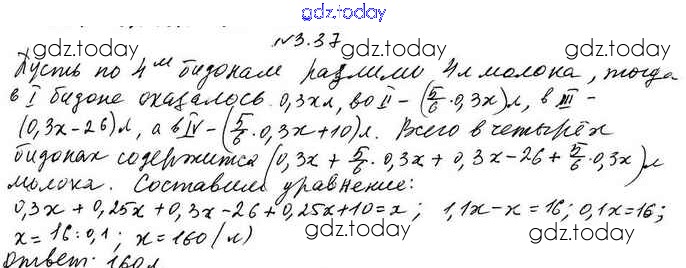 gdz.today
№3.37
gdz.today gdz.today
Пусть по 4м бидонам разлили 4л молока, тогда
в I бидоне оказалось 0,3хл, во II – (5/6 · 0,3x) л, в III –
(0,3x-26) л, а в IV – (5/6 · 0,3x+10) л. Всего в четырёх
gdz.today gdz.today
бидонах содержится (0,3x + 5/6 · 0,3x + 0,3x-26 + 5/6 · 0,3x) л
молока. Составим уравнение:
0,3x + 0,25x + 0,3x-26 + 0,25x+10 = x ; 1,1x-x = 16; 0,1x=16;
x = 16:0,1 ; x = 160 (л)
gdz.today gdz.today
Ответ: 160л
gdz.today